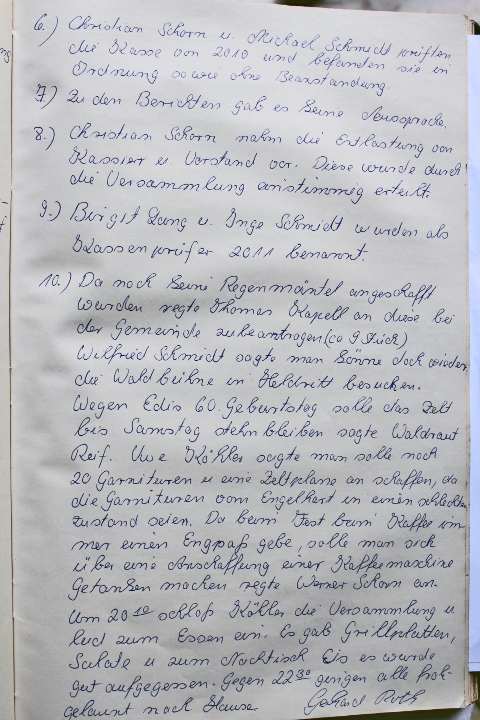 6.) Christian Schorn u. Michael Schmidt prüften
die Kasse von 2010 und befanden sie in
Ordnung sowie ohne Beanstandung.
7.) Zu den Berichten gab es keine Aussprache.
8.) Christian Schorn nahm die Entlastung von
Kassier u. Vorstand vor. Diese wurde durch
die Versammlung einstimmig erteilt.
9.) Birgit Lang u. Inge Schmidt wurden als
Kassenprüfer 2011 benannt.
10.) Da noch keine Regenmäntel angeschafft
wurden regte Thomas Kapell an diese bei
der Gemeinde zubeantragen (ca 9 Stück)
Wilfried Schmidt sagte man könne doch wieder
die Waldbühne in Heldritt besuchen.
Wegen Edis 60. Geburtstag solle das Zelt
bis Samstag stehnbleiben sagte Waldraut
Reif. Uwe Köhler sagte man solle noch
20 Garnituren u eine Zeltplane an schaffen, da
die Garnituren vom Engelhart in einen schlechten
zustand seien. Da beim Fest beim Kaffee im-
mer einen Engpaß gebe, solle man sich
über eine Anschaffung einer Kaffeemaschine
Getanken machen regte Werner Schorn an.
Um 20 10 schloß Köhler die Versammlung u
lud zum Essen ein. Es gab Grillplatten,
Salate u zum Nachtisch Eis es wurde
gut aufgegessen. Gegen 22 30 gingen alle froh-
gelaunt nach Hause. Gerhard Roth